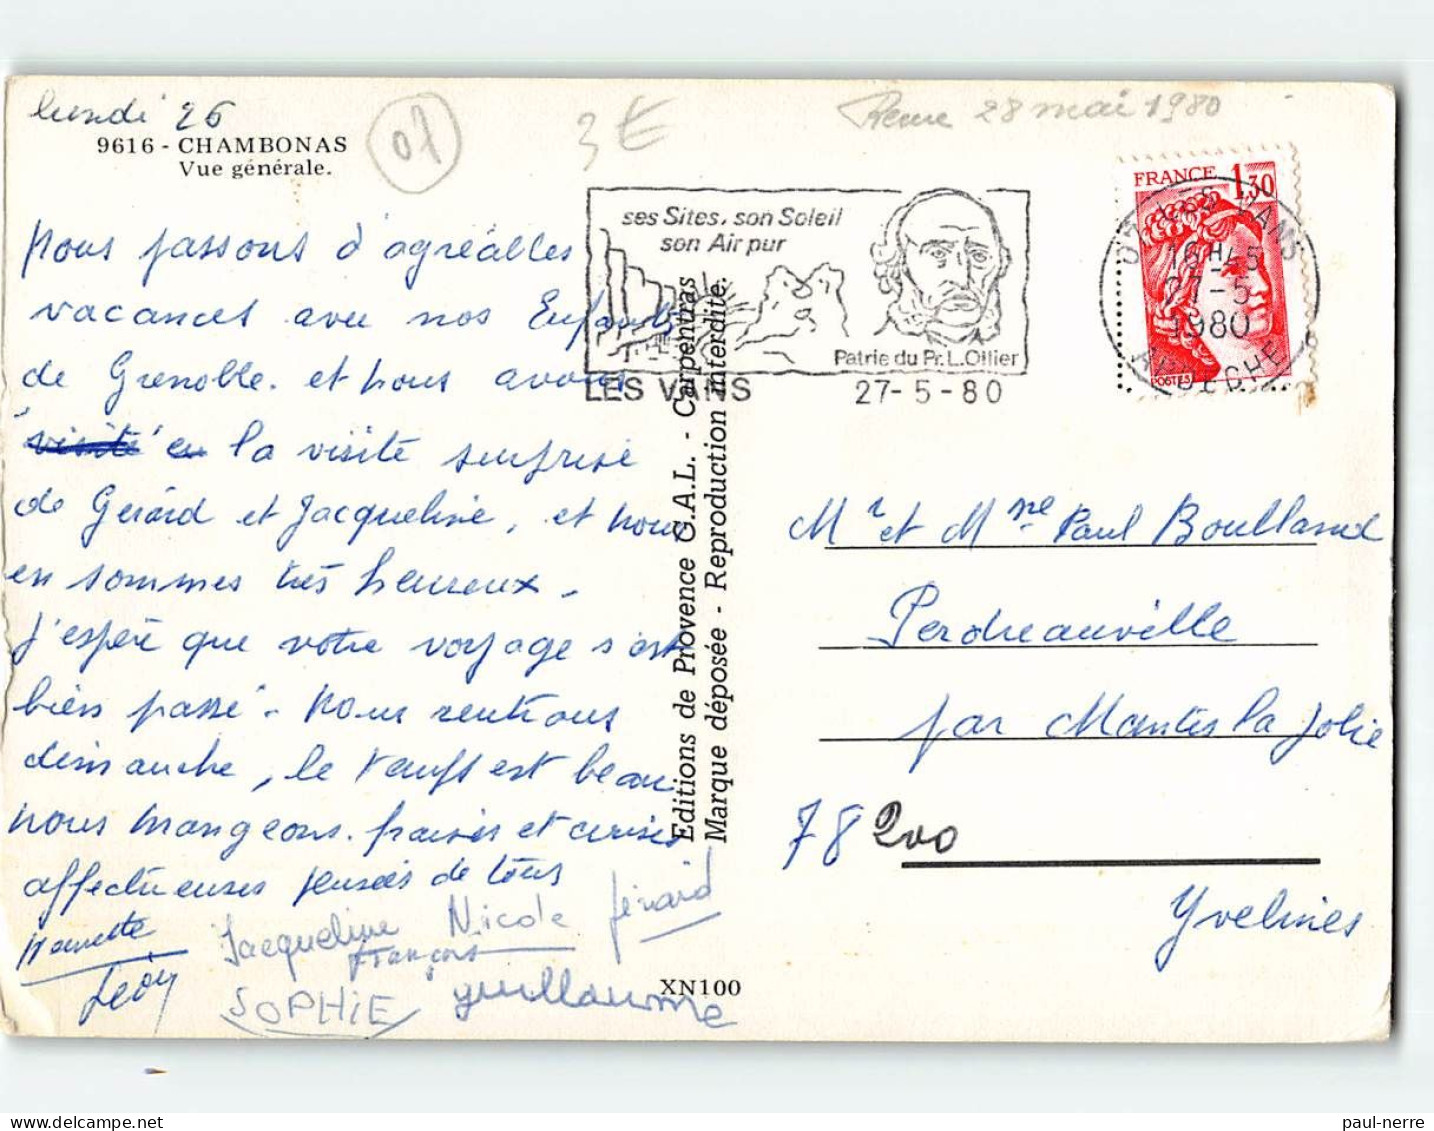 lundi 26
9616 - CHAMBONAS
Vue générale.
07
3€
28 mai 1980
nous passons d'agréables
vacances avec nos Enfants
de Grenoble. et nous avons
visité eu la visite surprise
de Gérard et Jacqueline, et nous
en sommes très heureux.
J'espère que votre voyage s'est
bien passé. Nous rentrons
dimanche, le temps est beau
nous mangeons fraises et cerises
affectueuses pensées de tous
Jacqueline Nicole Gérard
François
Léon
SOPHIE guillaume
ses Sites, son Soleil
son Air pur
Patrie du Pr. L. Ollier
LES VANS
27-5-80
FRANCE 1,30
POSTES
07 LES VANS
16H45
27-5
1980
ARDECHE
Editions de Provence G.A.L. - Carpentras
Marque déposée - Reproduction interdite.
XN100
Mr et Mme Paul Boulland
Perdreauville
par Mantes la Jolie
78200
Yvelines
paul-nerre